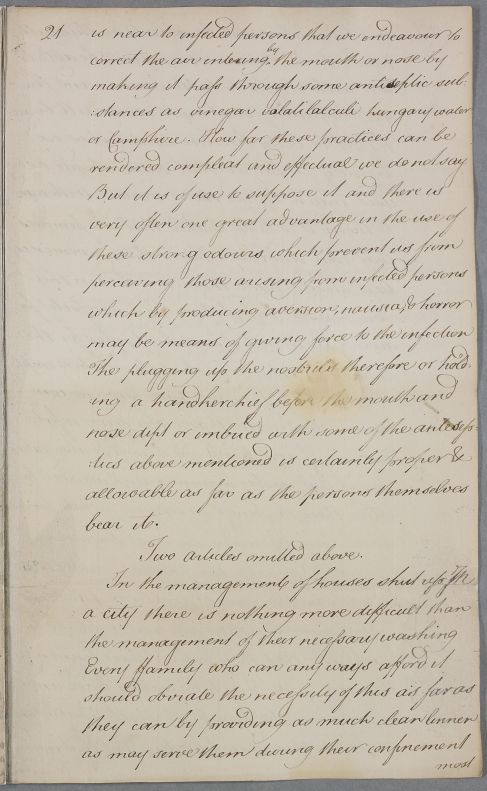 21 is near to infected persons that we endeavour to
correct the air entering by the mouth or nose by
making it pass through some antiseptic sub:
:stances as vinegar volatilalculi hungary water
or Camphire. How far these practices can be
rendered compleat and effectual we do not say
But it is of use to suppose it and there is
very often one great advantage in the use of
these strong odours which prevent us from
perceiving those arising from infected persons
which by producing aversion, nausia, & horror
may be means of giving force to the infection
The plugging up the nostrils therefore or hold
ing a handkerchief before the mouth and
nose dipt or imbued with some of the antisep:
:tics above mentioned is certainly proper &
allowable as far as the persons themselves
bear it.
Two articles omitted above.
In the management of houses shut up in
a city there is nothing more difficult than
the management of their necessary washing
Every ffamily who can any ways afford it
should obviate the necessity of this as far as
they can by providing as much clean linnen
as may serve them during their confinement
most